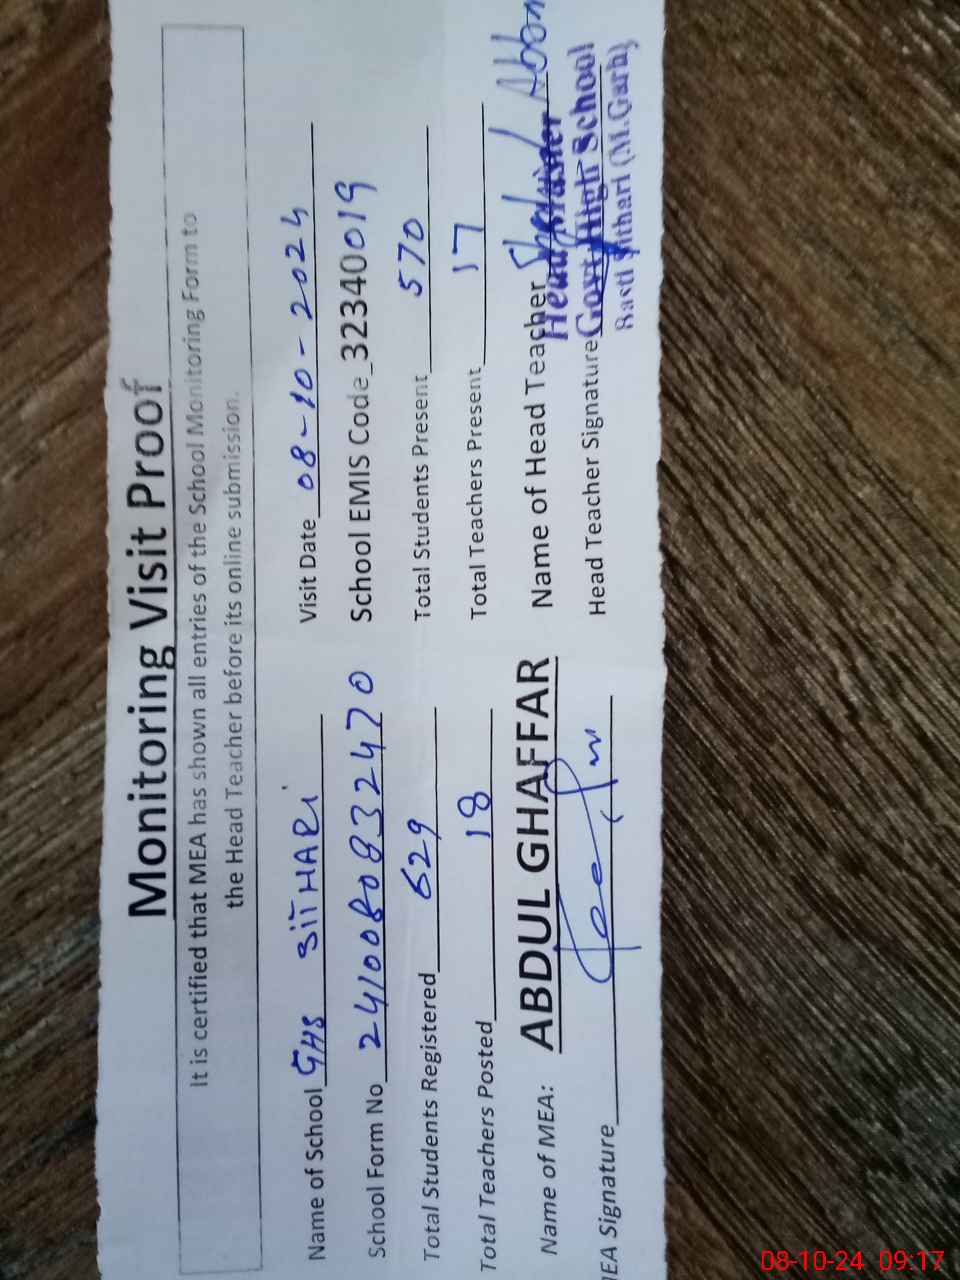 Monitoring Visit Proof
It is certified that MEA has shown all entries of the School Monitoring Form to
the Head Teacher before its online submission.
Name of School GHS SITHARI Visit Date 08-10-2024
School Form No 2410080832470 School EMIS Code 32340019
Total Students Registered 629 Total Students Present 570
Total Teachers Posted 18 Total Teachers Present 17
Name of MEA: ABDUL GHAFFAR Name of Head Teacher
Headmaster
MEA Signature Head Teacher Signature Govt. High School
Basti Sithari (M.Garh)
08-10-24 09:17